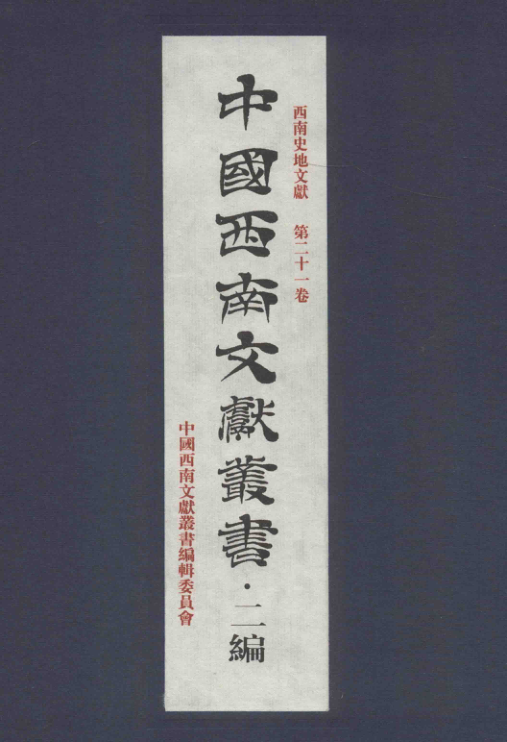 西南史地文獻 第二十一卷
中國西南文獻叢書·二編
中國西南文獻叢書編輯委員會